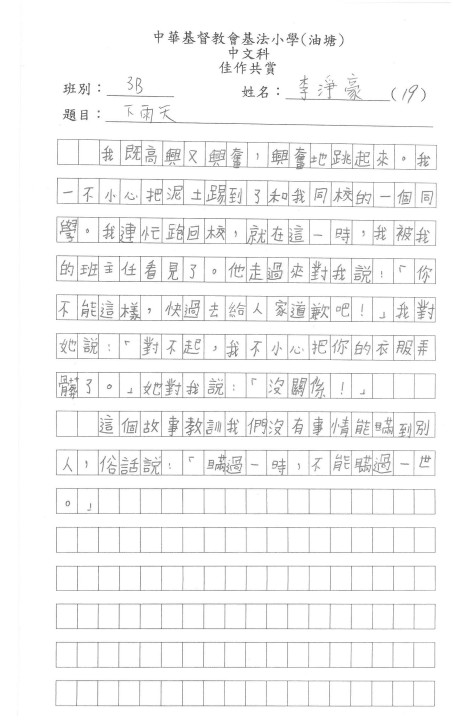 中華基督教會基法小學(油塘)
中文科
佳作共賞
班別：3B 姓名：李淨豪(19)
題目：下雨天
我既高興又興奮，興奮地跳起來。我
一不小心把泥土踢到了和我同校的一個同
學。我連忙跑回校，就在這一時，我被我
的班主任看見了。他走過來對我說：「你
不能這樣，快過去給人家道歉吧！」我對
她說：「對不起，我不小心把你的衣服弄
髒了。」她對我說：「沒關係！」
這個故事教訓我們沒有事情能瞞到別
人，俗話說：「瞞過一時，不能瞞過一世
。」